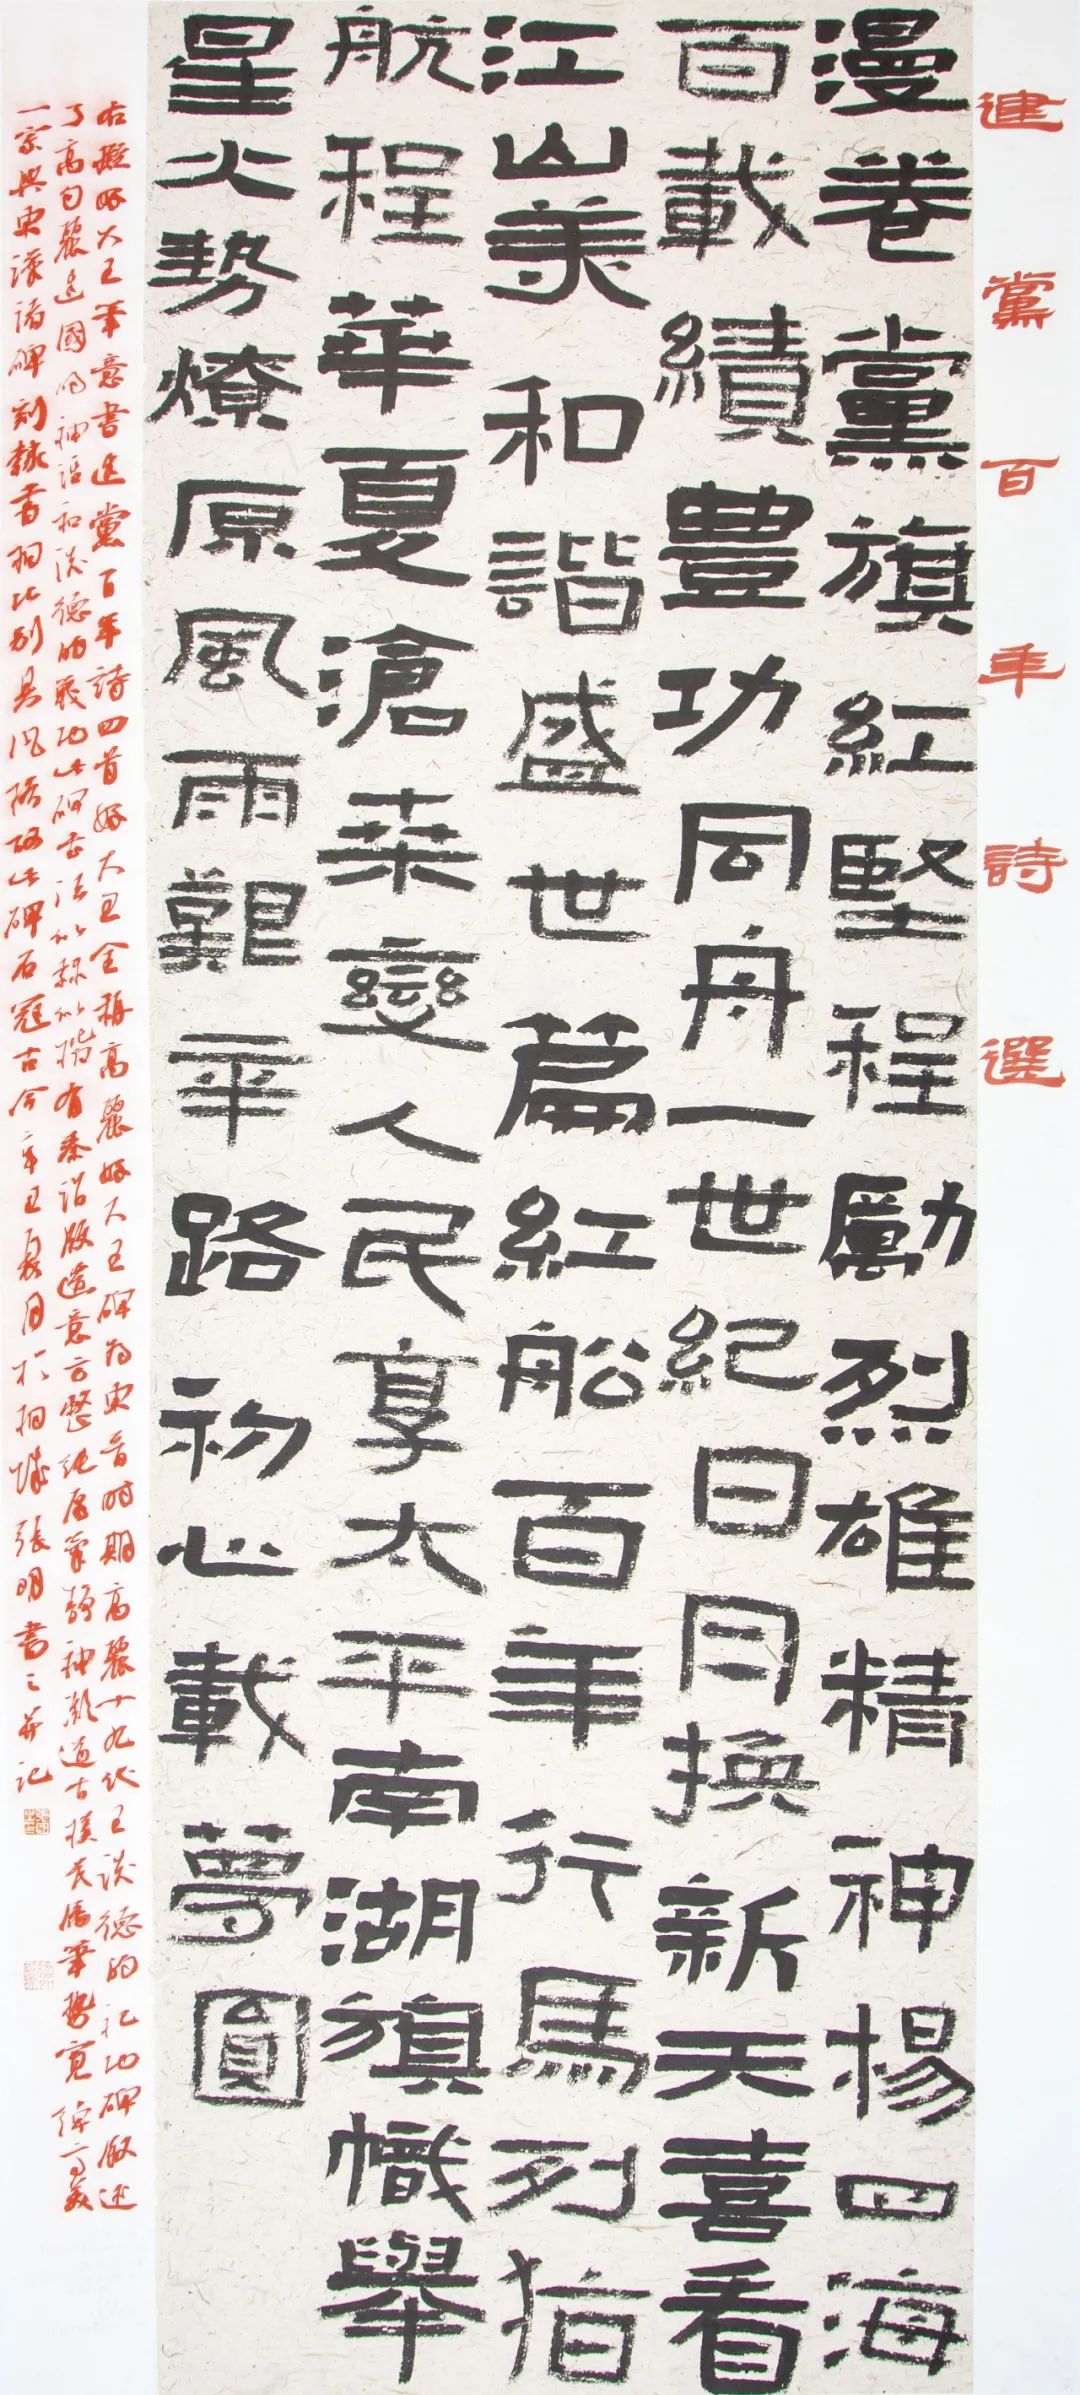 建黨百年詩選
漫卷黨旗紅堅程勵烈雄精神楊四海
百載績豊功同舟一世紀日月換新天喜看
江山美和諧盛世篇紅船百年行馬列指
航程華夏滄桒變人民享太平南湖旗幟舉
星火勢燎原風雨艱辛路初心載夢圓
右擬好大王筆意書建黨百年詩四首好大王全稱高麗好大王碑為東晉時期高麗十九代王談德的記功碑敘述
了高句麗建國的神話和談德的戰功此碑書法似隸似楷有秦詔版遺意方整純厚筆靜神凝遒古樸茂筆勢寬綽
一宗與東漢諸碑刻隸書相比别具風格此碑石冠古今辛丑夏月於桐城張明書之并記